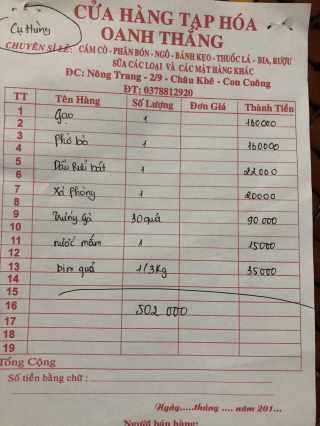 Cụ Hùng
CỬA HÀNG TẠP HÓA
OANH THẮNG
CHUYÊN SỈ LẺ: CÁM CÒ - PHÂN BÓN - NGÔ - BÁNH KẸO - THUỐC LÁ - BIA, RƯỢU
SỮA CÁC LOẠI VÀ CÁC MẶT HÀNG KHÁC
ĐC: Nông Trang - 2/9 - Châu Khê - Con Cuông
ĐT: 0378812920
TT Tên Hàng Số Lượng Đơn Giá Thành Tiền
1
2 Gạo 1 160000
3
4 Phở bò 1 160000
5
6 Dầu rửa bát 1 22000
7 Xà phòng 1 20000
8
9 Trứng gà 30 quả 90 000
10
11 nước mắm 1 15000
12
13 bim quả 1/3kg 35000
14
15
16 502 000
17
18
19
Tổng Cộng
Số tiền bằng chữ :
Ngày.....tháng .... năm 201...
Người bán hàng